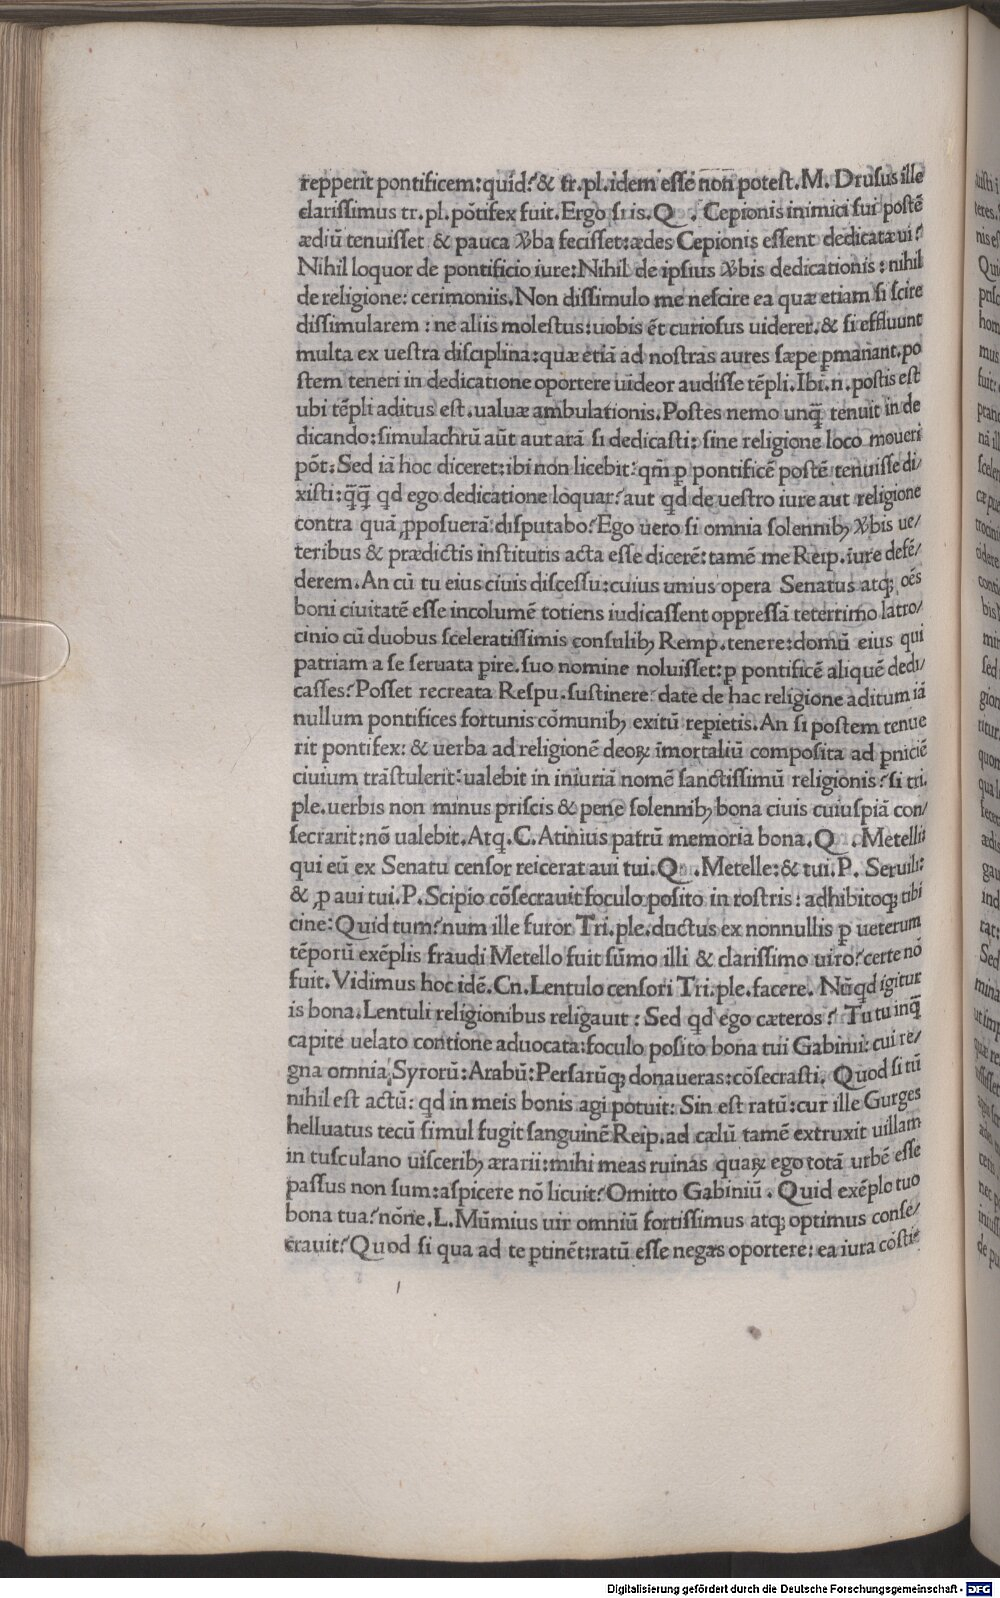 repperit pontificem:quid?& tr.pl.idem esse non potest.M. Drusus ille
clarissimus tr.pl.põtifex fuit.Ergo si is.Q . Cepionis inimici sui postẽ
ædiũ tenuisset & pauca ꝟba fecisset:ædes Cepionis essent dedicatæ ui?
Nihil loquor de pontificio iure:Nihil de ipsius ꝟbis dedicationis:nihil
de religione: cerimoniis.Non dissimulo me nescire ea quæ etiam si scire
dissimularem: ne aliis molestus:uobis ẽt curiosus uiderer.& si effluunt
multa ex uestra disciplina:quæ etiã ad nostras aures sæpe ꝑmanant.po
stem teneri in dedicatione oportere uideor audisse tẽpli.Ibi.n.postis est
ubi tẽpli aditus est.ualuæ ambulationis.Postes nemo unq̃ tenuit in de
dicando:simulachrũ aũt aut arã si dedicasti: sine religione loco moueri
põt.Sed iã hoc diceret:ibi non licebit:qm̃ ꝑ pontificẽ postẽ tenuisse di/
xisti:q̃q̃ qd ego dedicatione loquar?aut qd de uestro iure aut religione
contra quã ꝓposuerã disputabo?Ego uero si omnia solennibꝫ ꝟbis ue/
teribus & prædictis institutis acta esse dicerẽ:tamẽ me Reip.iure defẽ/
derem.An cũ tu eius ciuis discessu:cuius unius opera Senatus atqꝫ oẽs
boni ciuitatẽ esse incolumẽ totiens iudicassent oppressã teterrimo latro/
cinio cũ duobus sceleratissimis consulibꝫ Remp.tenere:domũ eius qui
patriam a se seruata ꝑire.suo nomine noluisset:ꝑ pontificẽ aliquẽ dedi/
casses?Posset recreata Respu.sustinere:date de hac religione aditum iã
nullum pontifices fortunis cõmunibꝫ exitũ reꝑietis.An si postem tenue
rit pontifex: & uerba ad religionẽ deoꝝ ĩmortaliũ composita ad ꝑniciẽ
ciuium trãstulerit:ualebit in iniuriã nomẽ sanctissimũ religionis?si tri.
ple.uerbis non minus priscis & pene solennibꝫ bona ciuis cuiuspiã con/
secrarit:nõ ualebit.Atq.C.Atinius patrũ memoria bona.Q .Metelli:
qui eũ ex Senatu censor reicerat aui tui.Q .Metelle:& tui.P. Seruili:
& ꝓaui tui.P.Scipio cõsecrauit foculo posito in rostris: adhibitoqꝫ tibi
cine:Quid tum?num ille furor Tri.ple.ductus ex nonnullis ꝑueterum
tẽporũ exẽplis fraudi Metello fuit sũmo illi & clarissimo uiro?certe nõ
fuit.Vidimus hoc idẽ.Cn.Lentulo censori Tri.ple.facere. Nũqd igitur
is bona.Lentuli religionibus religauit: Sed qd ego cæteros? Tu tu inq̃
capite uelato contione aduocata:foculo posito bona tui Gabinii:cui re/
gna omnia Syrorũ:Arabũ:Persarũqꝫ donaueras:cõsecrasti. Quod si tũ
nihil est actũ: qd in meis bonis agi potuit: Sin est ratũ:cur ille Gurges
helluatus tecũ simul fugit sanguinẽ Reip.ad cælũ tamẽ extruxit uillam
in tusculano uisceribꝫ ærarii:mihi meas ruinas quaꝝ ego totã urbẽ esse
passus non sum:aspicere nõ licuit?Omitto Gabiniũ. Quid exẽplo tuo
bona tua?nõne.L.Mũmius uir omniũ fortissimus atqꝫ optimus conse/
crauit?Quod si qua ad te ꝑtinẽt:ratũ esse negas oportere: ea iura cõsti
Digitalisierung gefördert durch die Deutsche Forschungsgemeinschaft - DFG